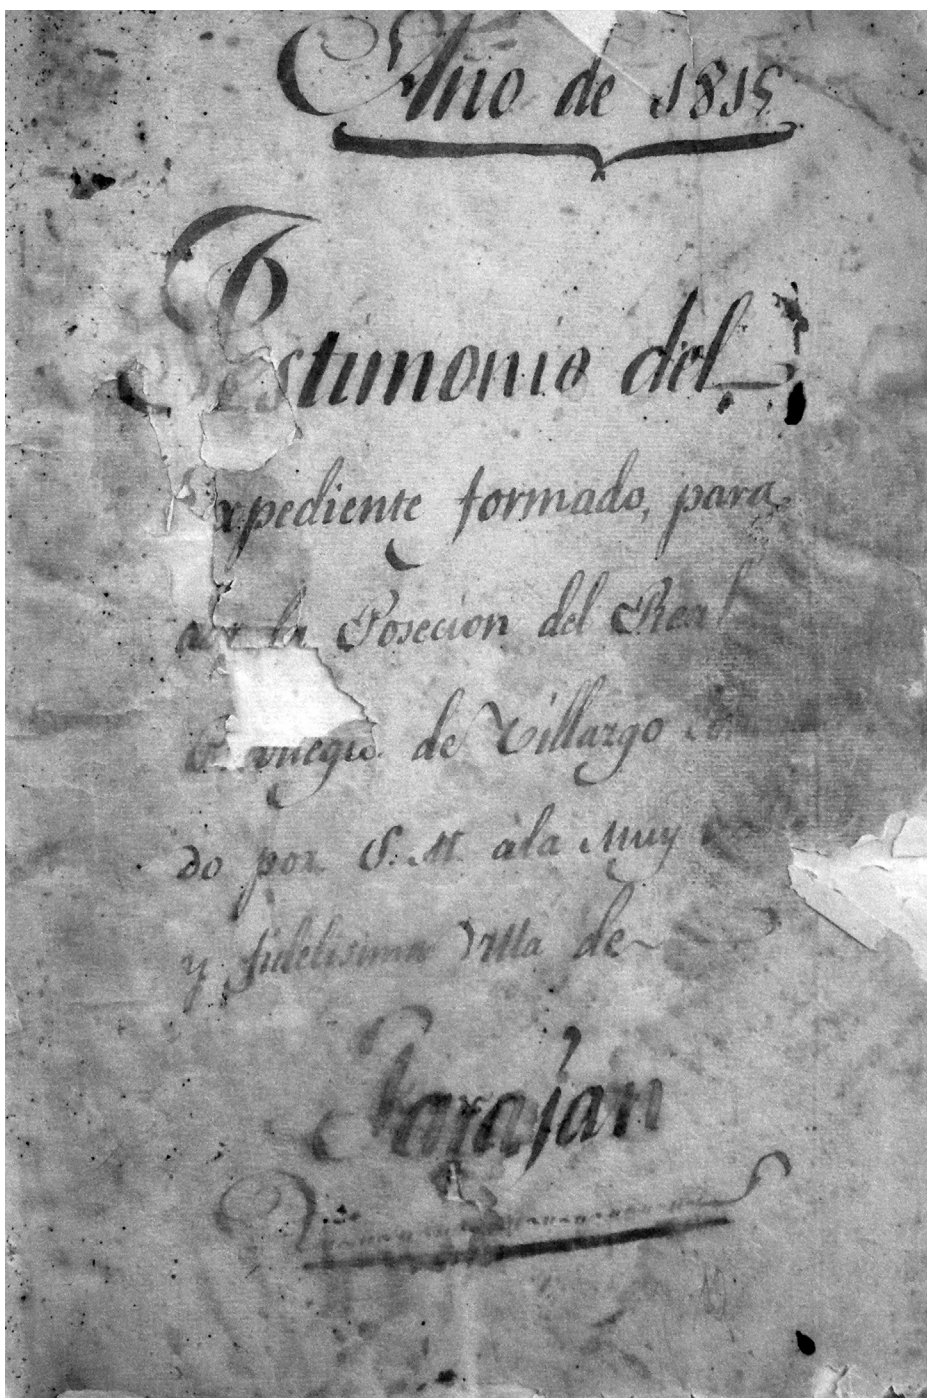 Año de 1815
Testimonio del
Expediente formado, para
la Posecion del Real
Privilegio de Villazgo
do por S. M. àla Muy
y fidelisima Villa de
Faraján